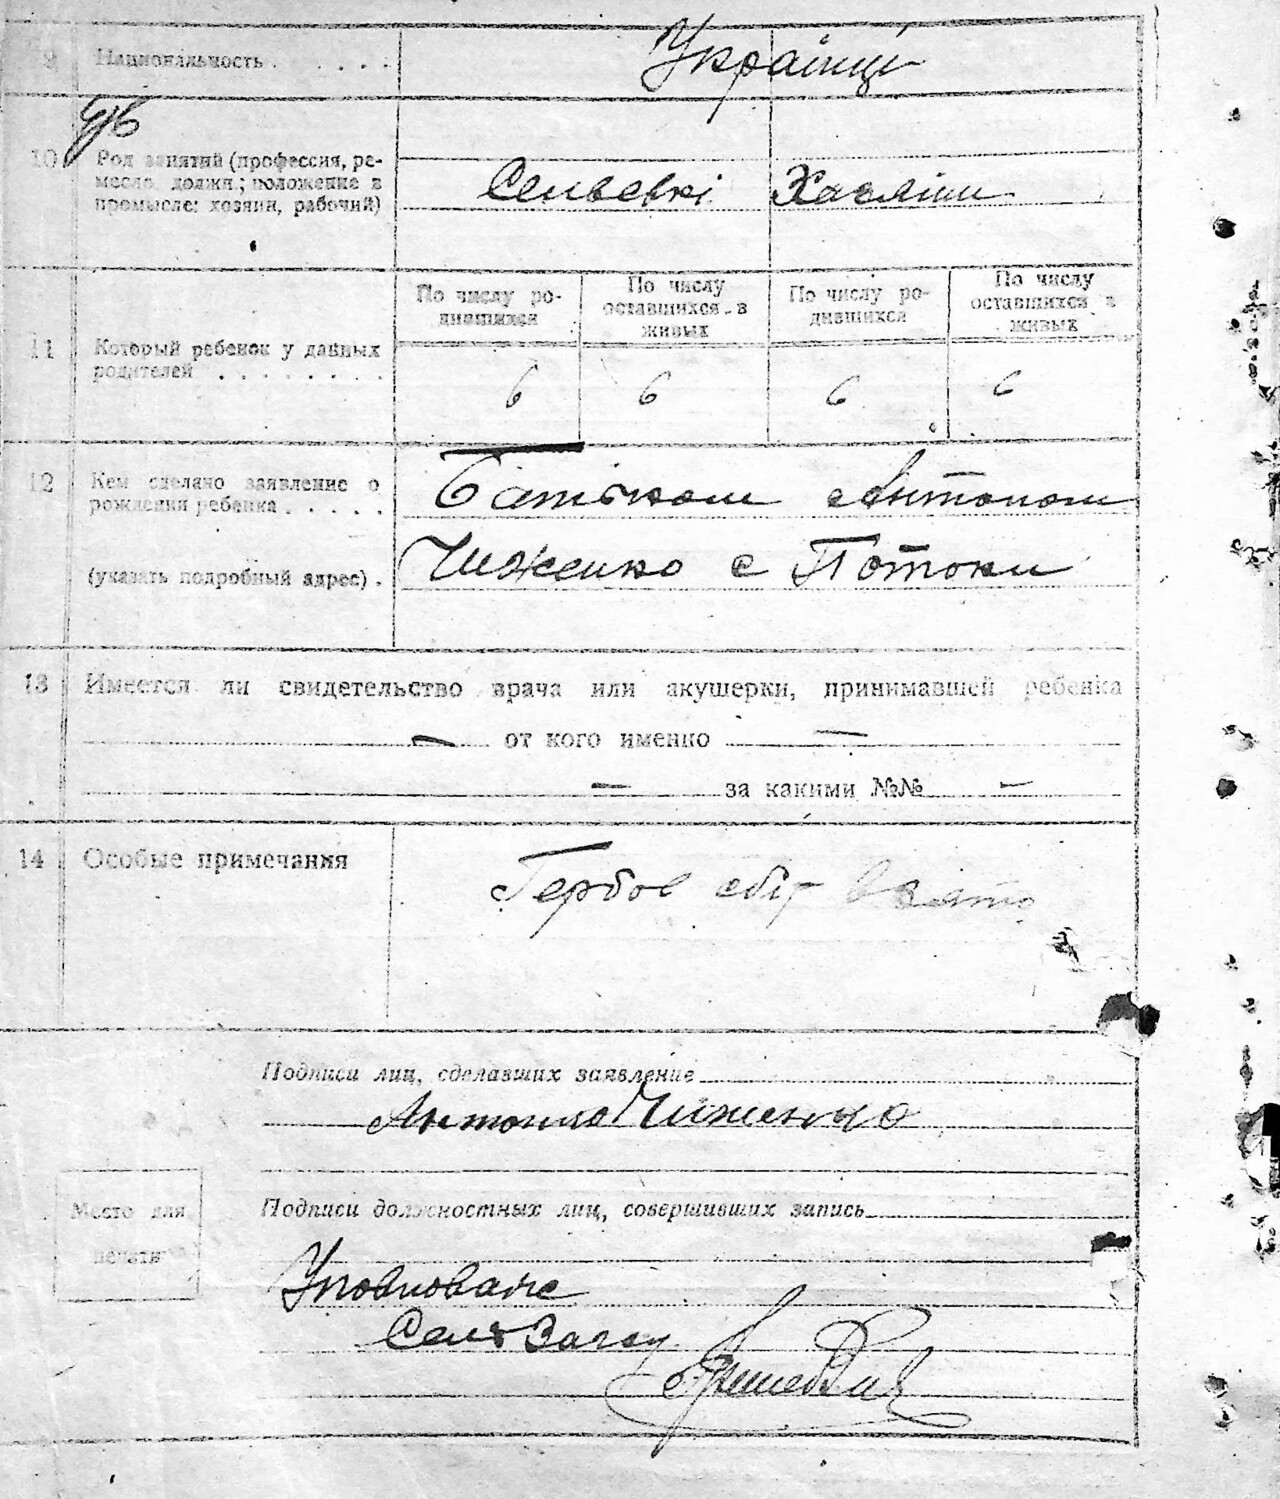 9 Национальность . . . . . Українці
10 Род занятий (профессия, ре-
месло, должн.; положение в
промысле: хозяин, рабочий)
11 Который ребенок у данных
родителей . . . . . . . .
По числу ро-
дившихся
По числу
оставшихся в
живых
По числу ро-
дившихся
По числу
оставшихся в
живых
6 6 6 6
12 Кем сделано заявление о
рождении ребенка . . . . .
(указать подробный адрес) .
Батьком Антоном
Чиженко с Потоки
13 Имеется ли свидетельство врача или акушерки, принимавшей ребенка
— от кого именно —
— за какими №№ —
14 Особые примечания
Гербов збір взято
Подписи лиц, сделавших заявление
Чиженко
Место для
печати
Подписи должностных лиц, совершивших запись